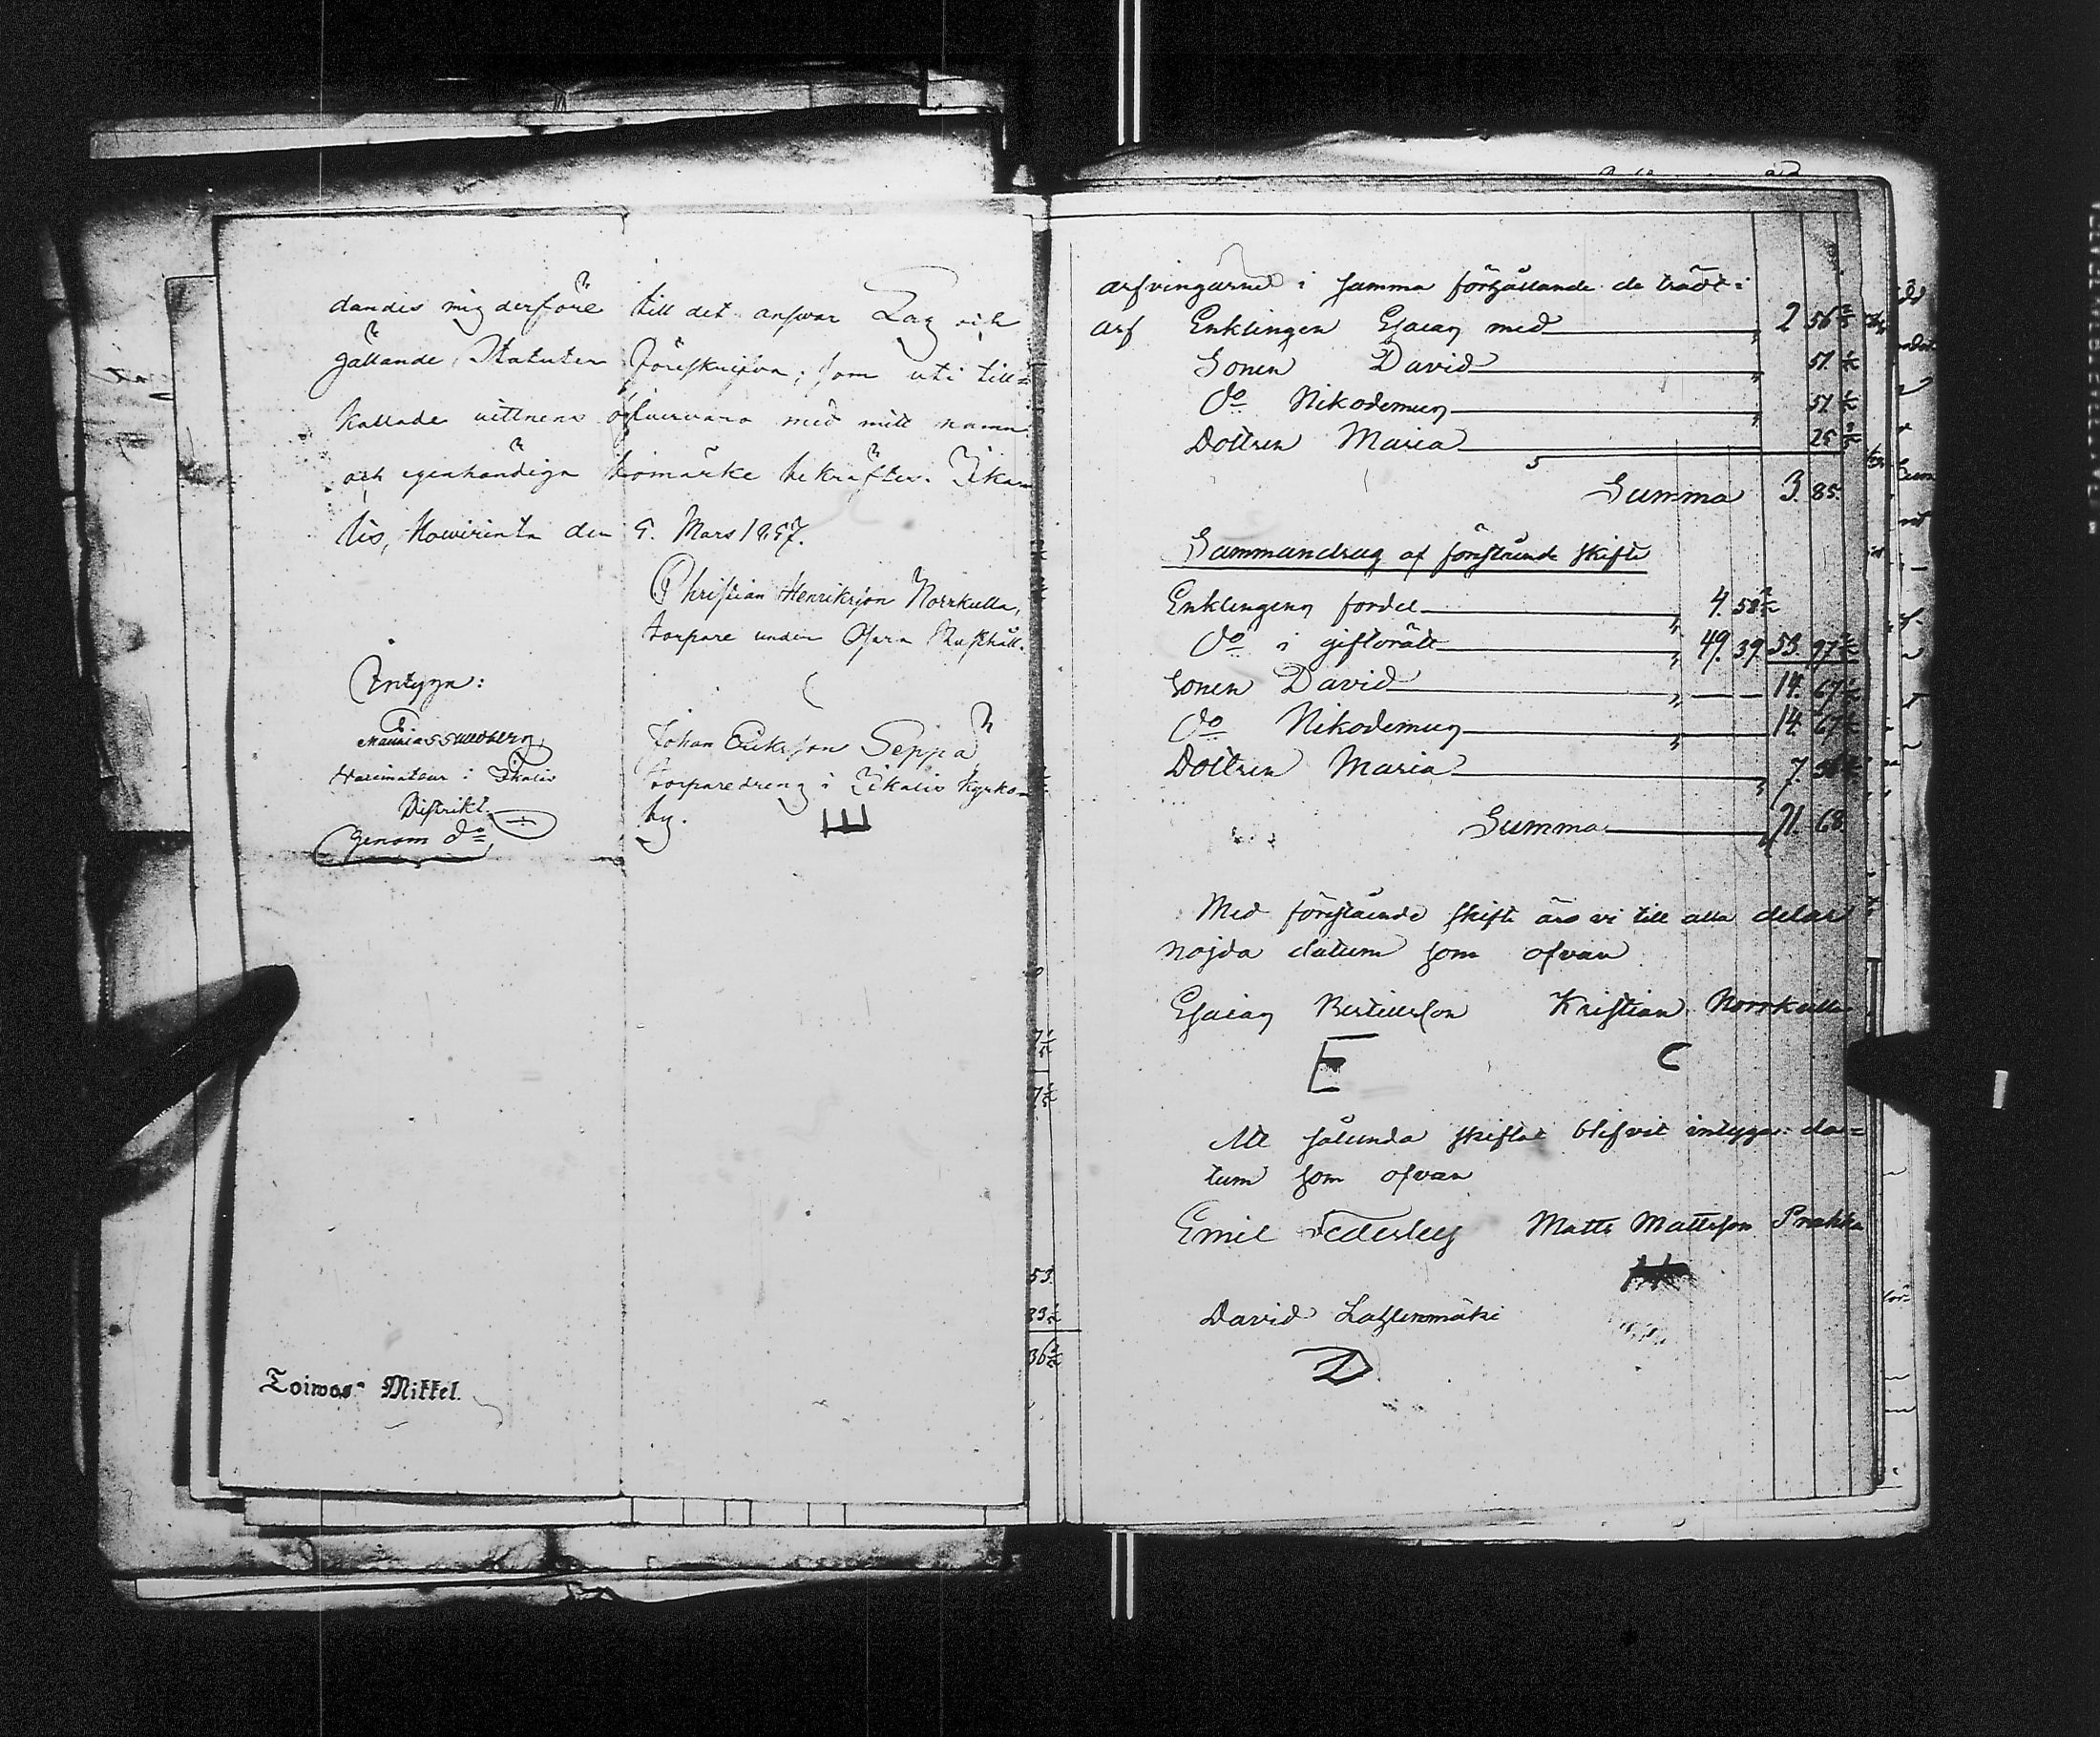 dandes mig derföre till det answar Lag och
gällande Statuter föreskrifva; som uti till=
kallade vittnens öfvervaro med mitt namn
och egenhändiga bomärke bekräftes. Ikaa
lis, Kowirinta den 5. Mars 1857.
Christian Henriksson Norrkulla,
torpare under Rusthåll.
Intyga:
Johan Eriksson Seppä
torparedreng i Ikalis Kyrko-
by.
i Ikalis
Distrikt.
Genom do
Toiwos= Mikkel.
arfvingarne i samma förhållande de trädt i
arf Enklingen Esaias med 2 56
Sonen David 51
do Nikodemus 51
Dottren Maria 25
Summa 3. 85.
Sammandrag af förestående skifte
Enklingens fördel 4. 58
do i giftorätt 49. 39 53. 97
Sonen David 14. 67
do Nikodemus 14. 67
Dottren Maria 7.
Summa 91. 68.
Med förestående skifte äro vi till alla delar
nöjda datum som ofvan
Esaias Bertillsson Kristian Norrkulla
E C
Att sålunda skiftat blifvit intygar da=
tum som ofvan
Emil Federley Matts Mattsson
David Lahtenmäki
D